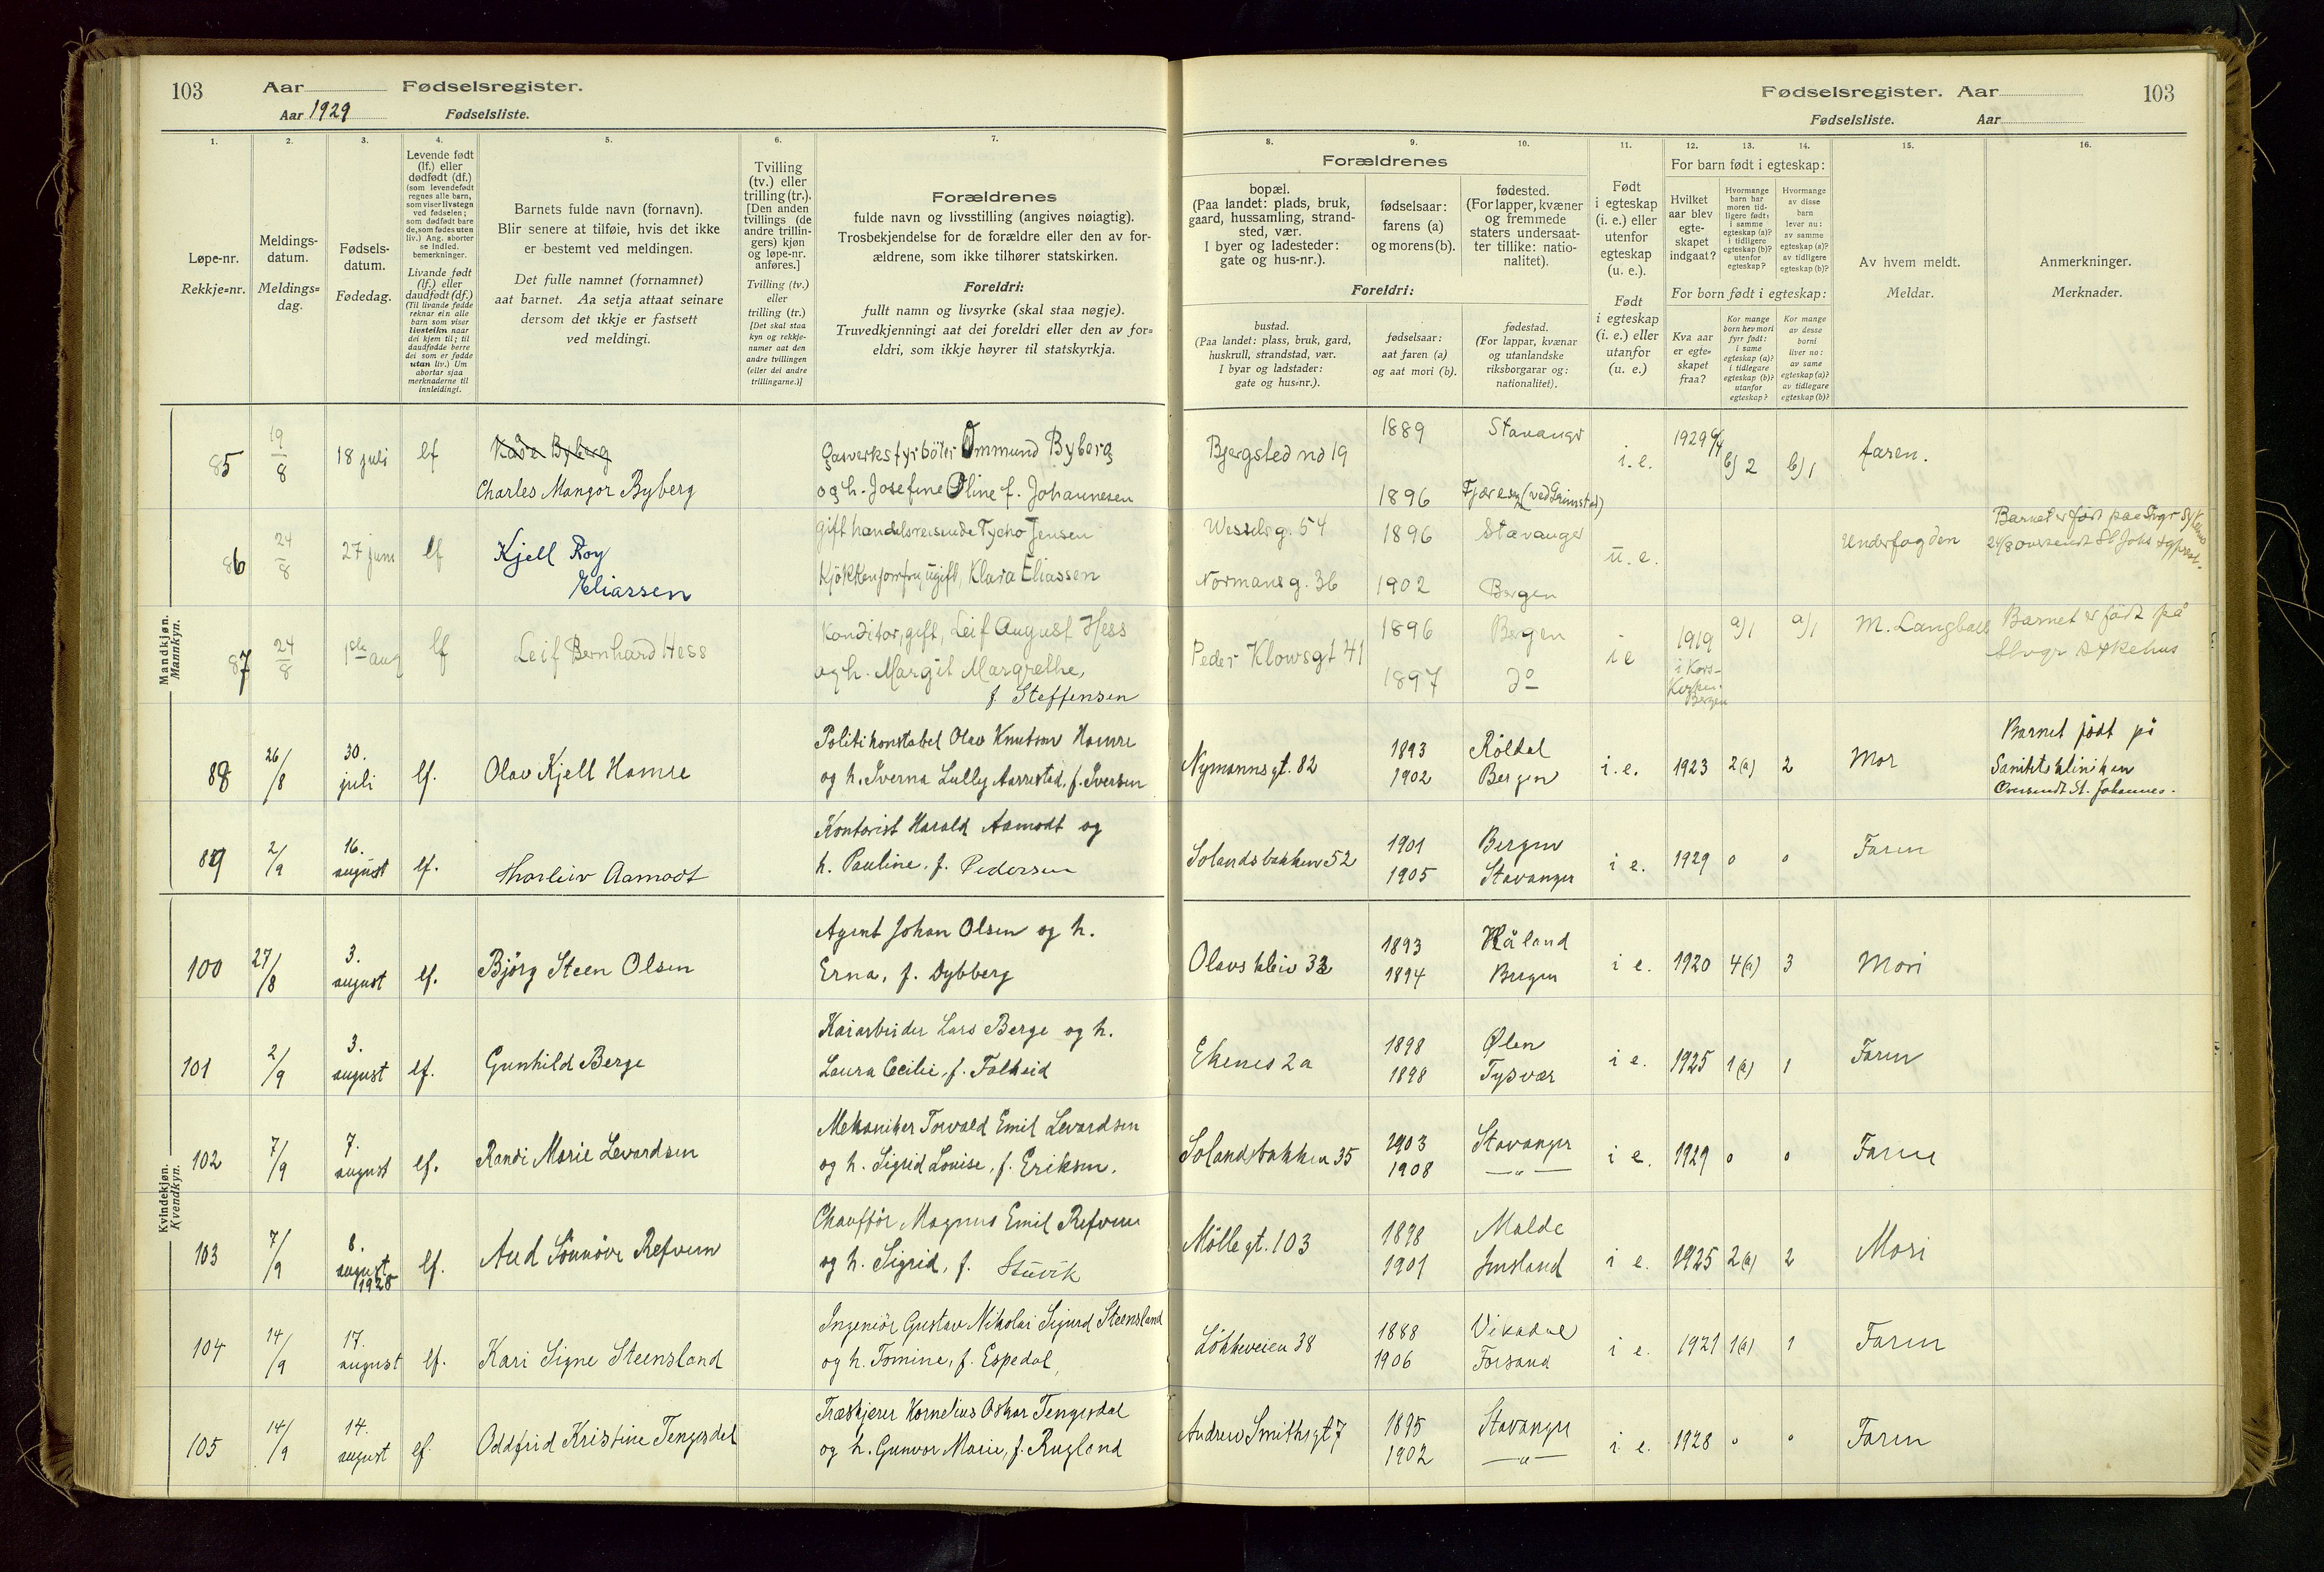 103 Aar Fødselsregister.
Aar 1929 Fødselsliste.
1. 2. 3. 4. 5. 6. 7.
Løpe-nr.
Rekkje=nr.
Meldings-
datum.
Meldings=
dag.
Fødsels-
datum.
Fødedag.
Levende født
(lf.) eller
dødfødt (df.)
(som levendefødt
regnes alle barn,
som viser livstegn
ved fødselen;
som dødfødt bare
de, som fødes uten
liv.) Ang. aborter
se indled.
bemerkninger.
Livande født
(lf.) eller
daudfødt (df.)
(Til livande fødde
reknar ein alle
barn som viser
livsteikn naar
dei kjem til; til
daudfødde berre
dei som er fødde
utan liv.) Um
abortar sjaa
merknaderne til
innleidingi.
Barnets fulde navn (fornavn).
Blir senere at tilføie, hvis det ikke
er bestemt ved meldingen.
Det fulle namnet (fornamnet)
aat barnet. Aa setja attaat seinare
dersom det ikkje er fastsett
ved meldingi.
Tvilling
(tv.) eller
trilling (tr.).
[Den anden
tvillings (de
andre trillin-
gers) kjøn
og løpe-nr.
anføres.]
Tvilling (tv.)
eller
trilling (tr.)
[Det skal staa
kyn og rekkje-
numer aat den
andre tvillingen
(eller dei andre
trillingarne.)]
Forældrenes
fulde navn og livsstilling (angives nøiagtig).
Trosbekjendelse for de forældre eller den av for-
ældrene, som ikke tilhører statskirken.
Foreldri:
fullt namn og livsyrke (skal staa nøgje).
Truvedkjenningi aat dei foreldri eller den av for=
eldri, som ikkje høyrer til statskyrkja.
Mandkjøn.
Mannkyn.
85 19/8 18 juli lf Kåre Byberg
Charles Mangor Byberg
Gasverksfyrböter Ommund Byberg
og h. Josefine Oline f. Johannesen
86 24/8 27 juni lf Kjell Roy
Eliassen
Gift handelsreisende Tycho Jensen
Kjökkenjomfru, ugift, Klara Eliassen
87 24/8 1ste aug lf Leif Bernhard Hess
Konditor, gift, Leif August Hess
og h. Margit Margrethe,
f. Steffensen
88 26/8 30. juli lf. Olav Kjell Hamre
Politikonstabel Olav Knutson Hamre
og h. Iverna Lully Aarrestad, f. Iversen
89 2/9 16. august lf. Thorleiv Aamodt
Kontorist Harald Aamodt og
h. Pauline, f. Pedersen
Kvindekjøn.
Kvendkyn.
100 27/8 3. august lf. Björg Steen Olsen
Agent Johan Olsen og h.
Erna, f. Dybberg
101 2/9 3. august lf. Gunhild Berge
Kaiarbeider Lars Berge og h.
Laura Cecilie, f. Falheid
102 7/9 7. august lf. Randi Marie Levardsen
Mekaniker Torvald Emil Levardsen
og h. Sigrid Louise, f. Eriksen.
103 7/9 8. august 1928 lf. Aud Sönnöve Refvem
Chafför Magnus Emil Refvem
og h. Sigrid, f. Stuvik
104 14/9 17. august lf. Kari Signe Steensland
Ingeniör Gustav Nikolai Sigurd Steensland
og h. Tomine, f. Espedal,
105 14/9 14. august lf. Oddfrid Kristine Tengesdal
Træskjærer Kornelius Oskar Tengesdal
og h. Gunvor Marie, f. Rugland
Fødselsregister. Aar 103
Fødselsliste. Aar
8. 9. 10. 11. 12. 13. 14. 15. 16.
Forældrenes
bopæl.
(Paa landet: plads, bruk,
gaard, hussamling, strand-
sted, vær.
I byer og ladesteder:
gate og hus-nr.).
fødselsaar:
farens (a)
og morens (b).
fødested.
(For lapper, kvæner
og fremmede
staters undersaat-
ter tillike: natio-
nalitet).
Foreldri:
bustad.
(Paa landet: plass, bruk, gard,
huskrull, strandstad, vær.
I byar og ladstader:
gate og hus=nr.).
fødselsaar:
aat faren (a)
og aat mori (b).
fødestad.
(For lappar, kvænar
og utanlandske
riksborgarar og:
nationalitet).
Født
i egteskap
(i. e.) eller
utenfor
egteskap
(u. e.).
Født
i egteskap
(i. e.) eller
utanfor
(u. e.)
For barn født i egteskap:
Hvilket
aar blev
egte-
skapet
indgaat?
Hvormange
barn har
moren tid-
ligere født:
i samme
egteskap (a)?
i tidligere
egteskap (b)?
utenfor
egteskap?
Hvormange
av disse
barn
lever nu:
av samme
egteskap (a)?
av tidligere
egteskap (b)?
For born født i egteskap:
Kva aar
er egte=
skapet
fraa?
Kor mange
born hev mori
fyrr født:
i same
egteskap (a)?
i tidlegare
egteskap (b)?
utanfor
egteskap?
Kor mange
av desse
borni
liver no:
av same
egteskap (a)?
av tidlegare
egteskap (b)?
Av hvem meldt.
Meldar.
Anmerkninger.
Merknader.
Bjergsted no 19 1889 Stavanger i. e. 1929 6/4 b) 2 b) 1 faren.
1896 Fjære (ved Grimstad)
Wesselsg. 54 1896 Stavanger u. e.
Normansg. 36 1902 Bergen
Barnet er født paa Svgr Sykehus
24/8 oversendt St Johs sgprest.
Peder Klowsgt 41 1896 Bergen i e 1919 a/1 a/1 M. Langball
1897 do i Kors-
Kirken.
Bergen
Barnet er födt på
Stvgr sykehus
Nymannsgt. 82 1893 Röldal i. e. 1923 2(a) 2 Mor
1902 Bergen
Barnet födt på
Sanitetskliniken
Oversendt St. Johannes.
Solandsbakken 52 1901 Bergen i e. 1929 0 0 Faren
1905 Stavanger
Olavskleiv 32 1893 Håland i e. 1920 4(a) 3 Mori
1894 Bergen
Ekenes 2a 1898 Ølen i e. 1925 1(a) 1 Faren
1898 Tysvær
Solandsbakken 35 1903 Stavanger i e. 1929 0 0 Faren
1908 — " —
Möllegt. 103 1898 Malde i e. 1925 2(a) 2 Mori
1901 Imsland
Lökkeveien 38 1888 Vikedal i e. 1921 1(a) 1 Faren
1906 Forsand
Andrew Smithsgt 7 1895 Stavanger i e. 1928 0 0 Faren
1902 — " —